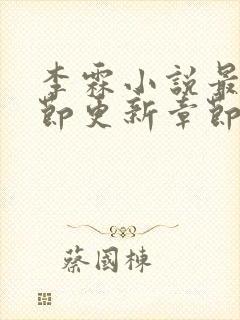 李霖小說最
節更新章節
蔡國棟